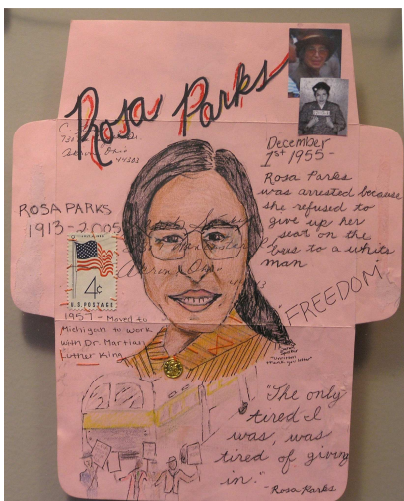 Rosa Parks
Ohio
44303
December
1st 1955-
Rosa Parks
was arrested because
she refused to
give up her
seat on the
bus to a white
man
ROSA PARKS
1913-2005
4¢
U.S. POSTAGE
FREEDOM
1957 - Moved to
Michigan to work
with Dr. Martin
Luther King
"The only
tired I
was, was
tired of giving
in."
- Rosa Parks